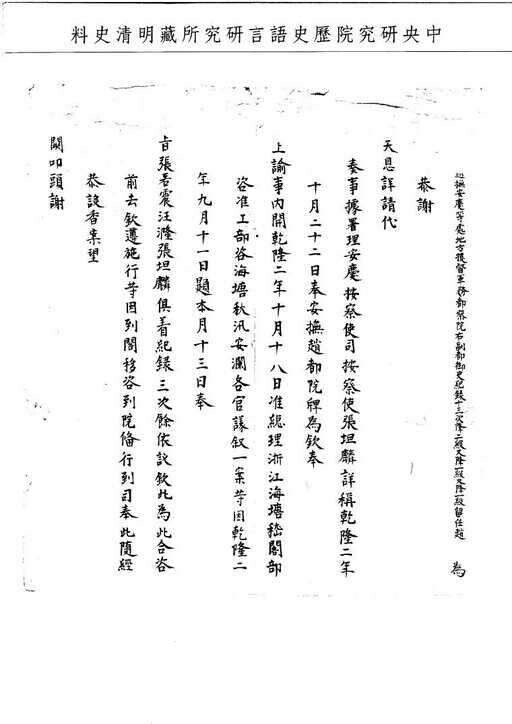 中央研究院歷史語言研究所藏明清史料
巡撫安慶等處地方提督軍務都察院右副都御史紀錄十三次降二級又降一級又降一級留任趙 為
恭謝
天恩詳請代
奏事據署理安慶按察使司按察使張坦麟詳稱乾隆二年
十月二十二日奉安撫趙都院牌為欽奉
上諭事內開乾隆二年十月十八日准總理浙江海塘嵇閣部
咨准工部咨海塘秋汛安瀾各官議叙一案等因乾隆二
年九月十一日題本月十三日奉
旨張若震汪漋張坦麟俱着紀錄三次餘依議欽此為此合咨
前去欽遵施行等因到閣移咨到院備行到司奉此隨經
恭設香案望
闕叩頭謝